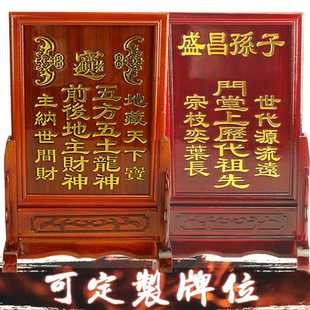 地藏天下寶
五方五土龍神
前後地主財神
主納世間財
子孫昌盛
世代源流遠
門堂上歷代祖先
宗枝奕葉長
可定製牌位